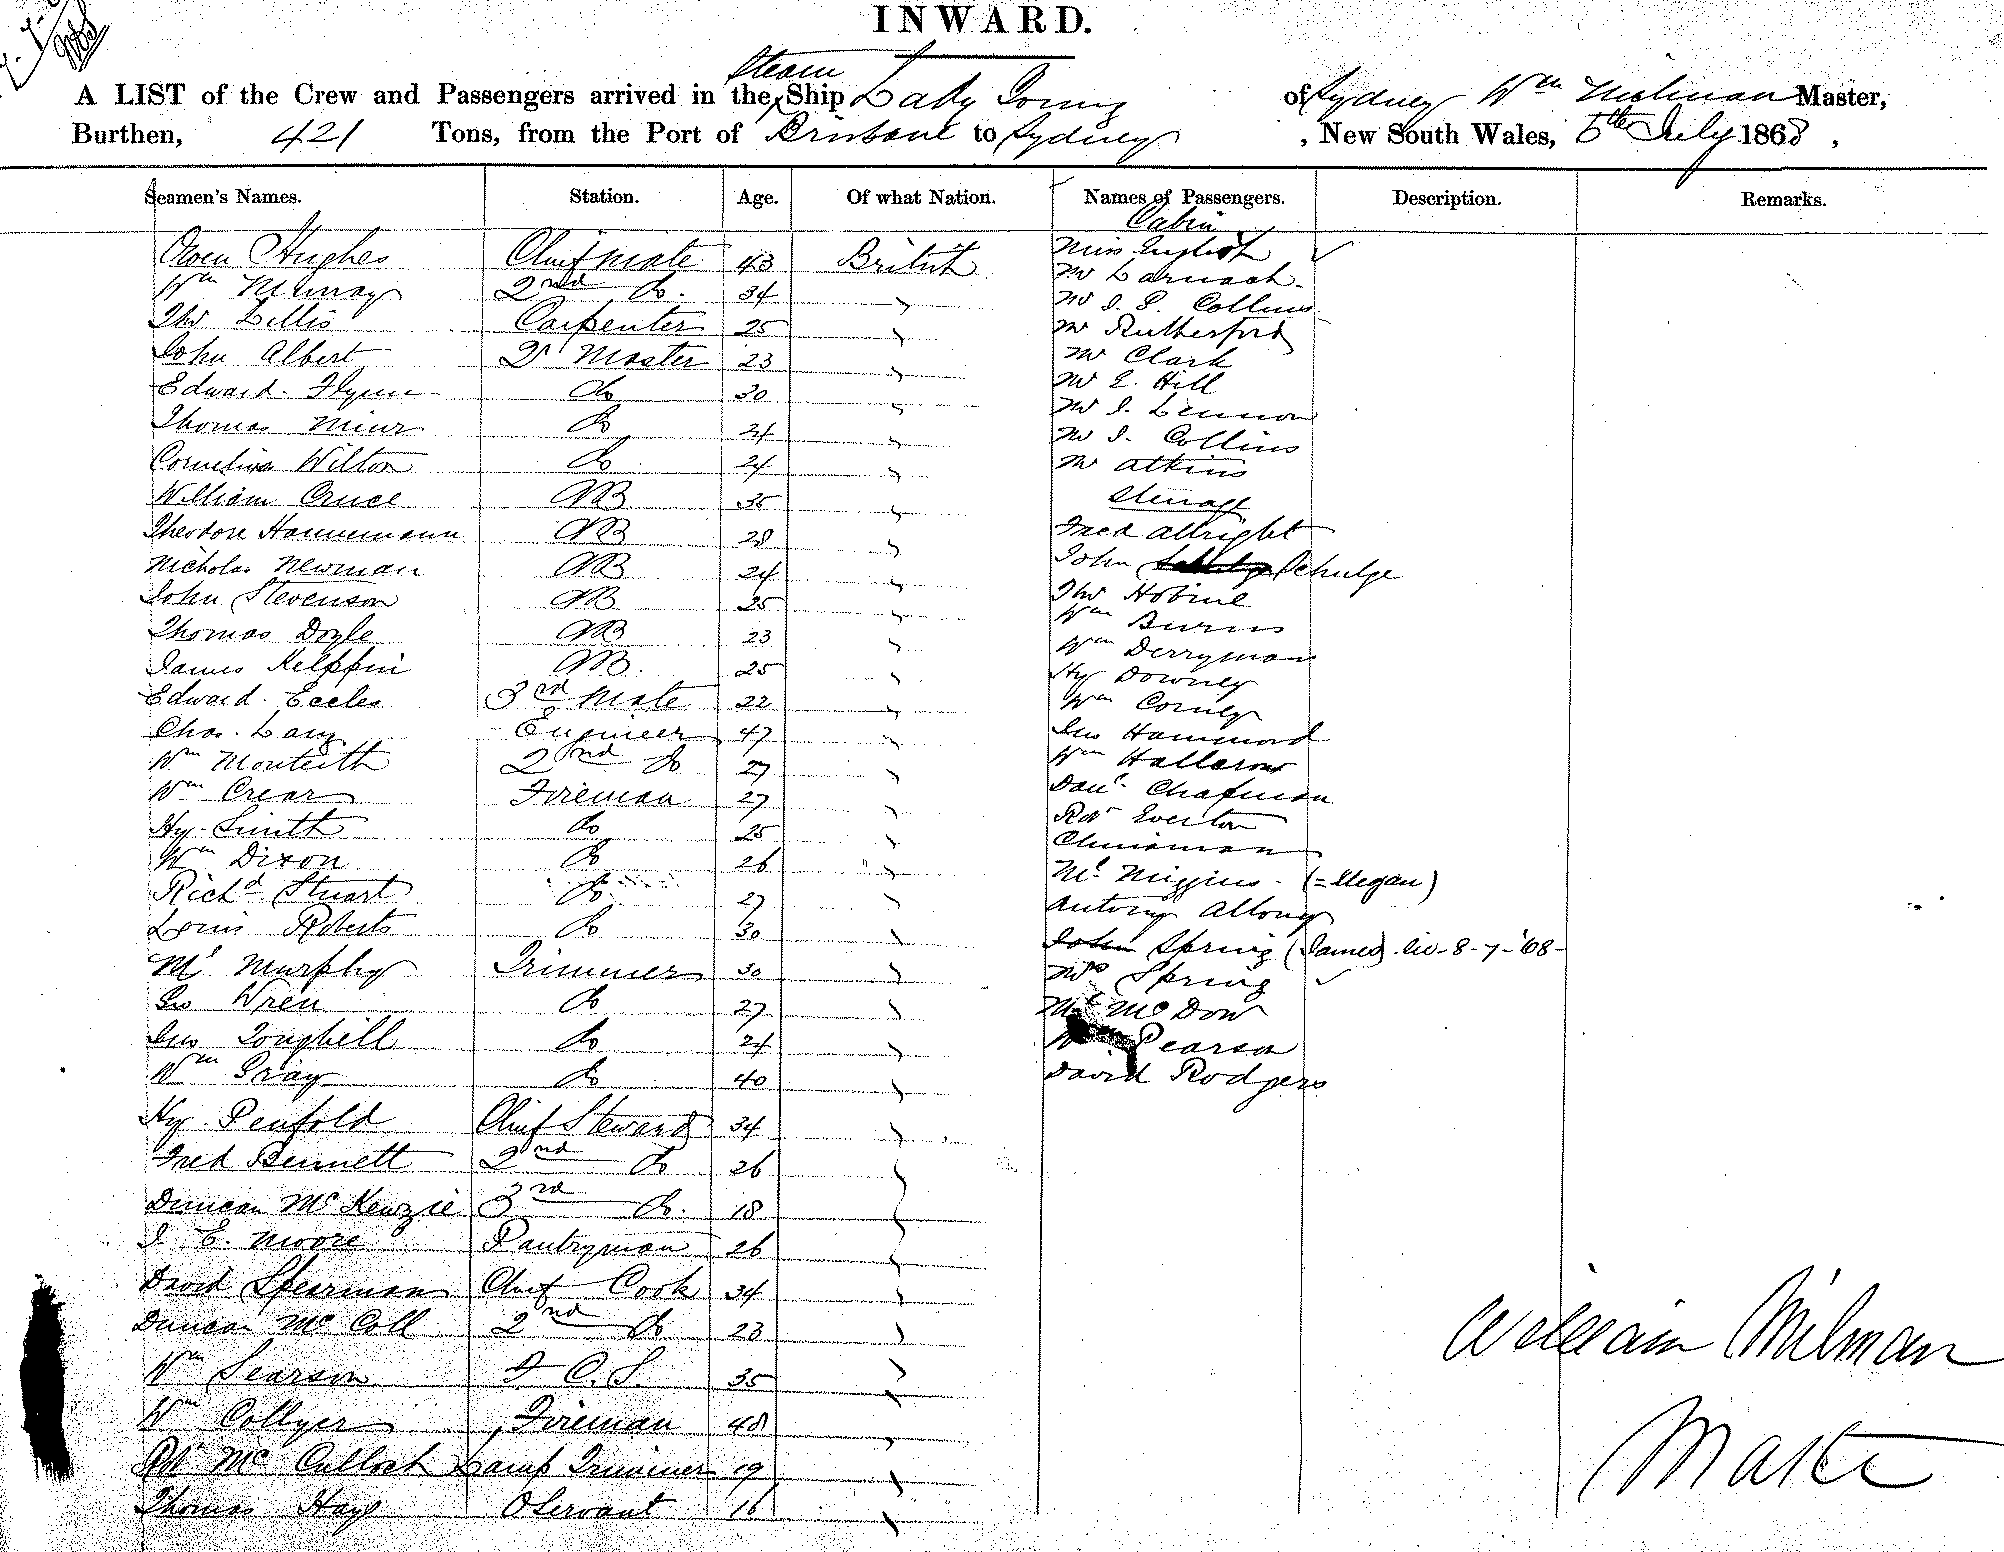 INWARD.
Steam
A LIST of the Crew and Passengers arrived in the Ship Lady Young of Sydney Wm Milman Master,
Burthen, 421 Tons, from the Port of Brisbane to Sydney, New South Wales, 5th July 1868,
Seamen's Names. Station. Age. Of what Nation. Names of Passengers. Description. Remarks.
Cabin
Owen Hughes Chief Mate 43 British Miss English
Wm McMurray 2nd Do. 34 " Mr Larnach
Thos Lillis Carpenter 25 " Mr J. P. Collins
John Albert Qr Master 23 " Mr Rutherford
Edward Flynn Do 30 " Mr Clark
Thomas Muir Do 21 " Mr E. Hill
Cornelius Wilton Do 24 " Mr J. Lennon
William Cruce AB 35 " Mr J. Collins
Theodore Hannemann AB 28 " Mr Atkins
Nicholas Newman AB 24 " Steerage
John Stevenson AB 25 " Fred Allright
Thomas Doyle AB 23 " John Schulze
James Kelppin AB. 25 " Thos
Edward Eccles 3rd Mate 22 " Wm Burns
Chas. Lang Engineer 47 " Wm Derryman
Wm Monteith 2nd Do 27 " Hy Downey
Wm Crear Fireman 27 " Wm Cornley
Hy Smith Do 25 " Jno Hammond
Wm Dixon Do 26 " Wm Halloran
Richd Stuart Do. 27 " Danl. Chapman
Louis Roberts Do 30 " Rdt Everton
Ml Murphy Trimmer 30 " Chinaman
Geo Wren Do 27 " Ml Miggins (=Megan)
Jno Do 24 " Antony Altony
Wm Gray Do 40 " John Spring (James) 8-7-'68-
Hy Penfold Chief Steward 34 " Mrs Spring
Fred Bennett 2nd Do 26 " McDow
Duncan McKenzie 3rd Do. 18 " Pearson
J E. Moore Pantryman 26 " David Rodgers
David Spearman Chief Cook 34 "
Duncan McColl 2nd Do 23 "
Wm Searson F C.S. 35 "
Wm Collyer Fireman 48 "
Rdt McCulloch Lamp Trimmer 19 "
Thomas Hay OServant 16 "
William Milman
Master